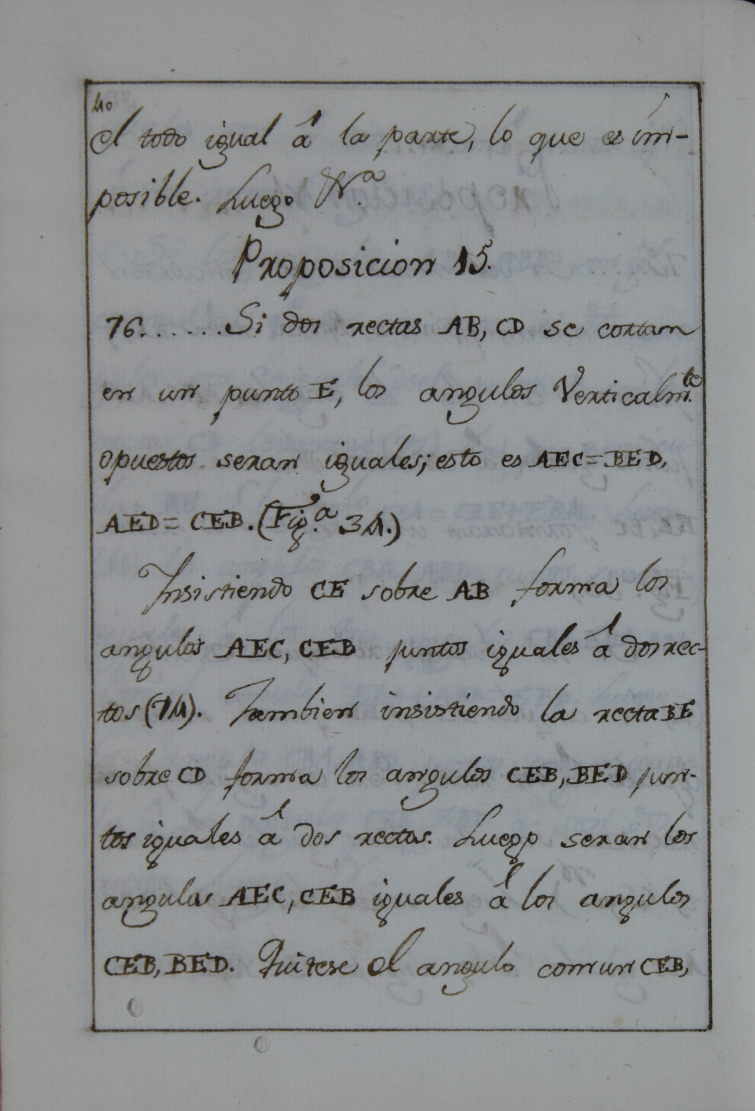 40
el todo igual á la parte, lo que es im-
posible. Luego &.ª
Proposicion 15.
76.......Si dos rectas AB, CD se cortan
en un punto E, los angulos Verticalm.te
opuestos seran iguales; esto es AEC=BED,
AED= CEB. (Fig.ª 34.)
Insistiendo CE sobre AB forma los
angulos AEC, CEB juntos iguales á dos rec-
tos (74). Tambien insistiendo la recta BE
sobre CD forma los angulos CEB, BED jun-
tos iguales á dos rectos. Luego seran los
angulos AEC, CEB iguales á los angulos
CEB, BED. Quitese el angulo comun CEB,